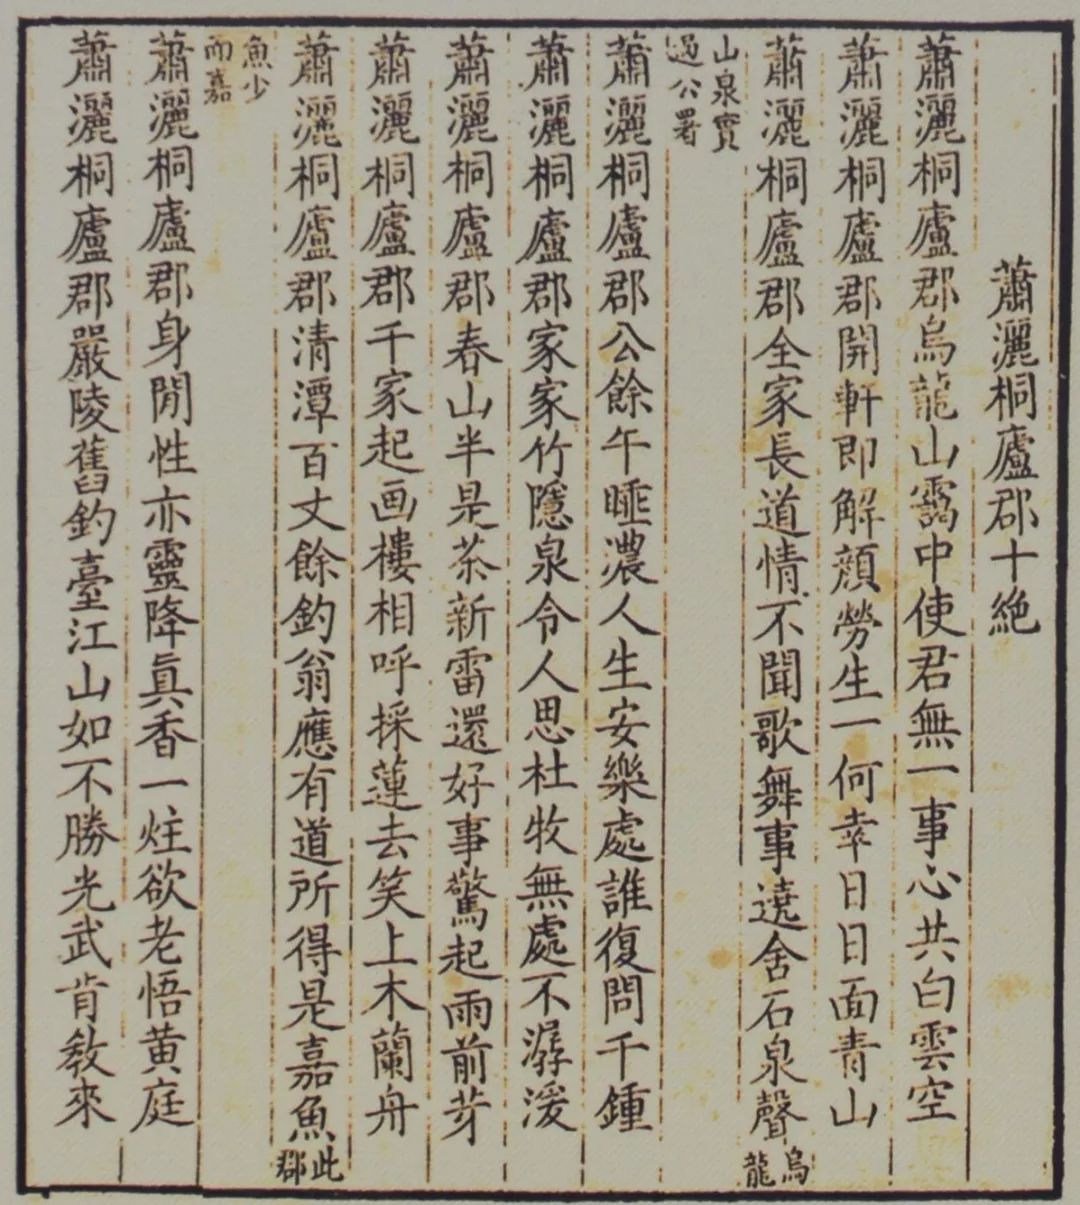 蕭灑桐廬郡十絶
蕭灑桐廬郡烏龍山靄中使君無一事心共白雲空
蕭灑桐廬郡開軒即解顔勞生一何幸日日面青山
蕭灑桐廬郡全家長道情不聞歌舞事遶舍石泉聲烏龍
山泉實
過公署
蕭灑桐廬郡公餘午睡濃人生安樂處誰復問千鍾
蕭灑桐廬郡家家竹隱泉令人思杜牧無處不潺湲
蕭灑桐廬郡春山半是茶新雷還好事驚起雨前芽
蕭灑桐廬郡千家起画樓相呼採蓮去笑上木蘭舟
蕭灑桐廬郡清潭百丈餘釣翁應有道所得是嘉魚此郡
魚少
而嘉
蕭灑桐廬郡身閒性亦靈降眞香一炷欲老悟黄庭
蕭灑桐廬郡嚴陵舊釣臺江山如不勝光武肯教來